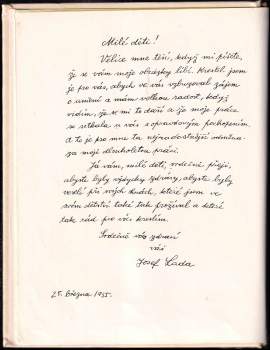 Milé děti!
Velice mne těší, když mi píšete,
že se vám moje obrázky líbí. Kreslil jsem
je pro vás, abych ve vás vzbuzoval zájem
o umění a mám velkou radost, když
vidím, že se mi to daří a že moje práce
se setkala u vás s opravdovým pochopením
a to je pro mne ta nejradostnější odměna
za moji dlouholetou práci.
Já vám, milé děti, srdečně přeji,
abyste byly vždycky zdrávy, abyste byly
veselé při svých hrách, které jsem ve
svém dětství také tak prožíval a které
tak rád pro vás kreslím.
Srdečně vás zdraví
váš
Josef Lada
25. března 1955.